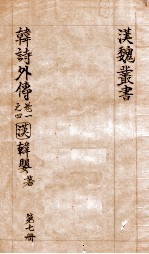 漢魏叢書
韓詩外傳 卷一之四 漢 韓嬰著
第七冊